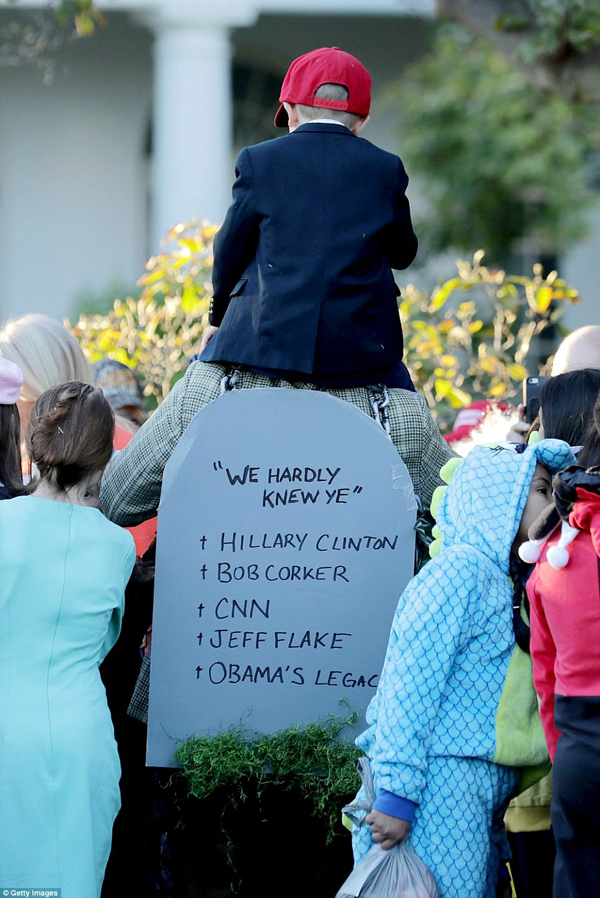 "WE HARDLY
KNEW YE"
† HILLARY CLINTON
† BOB CORKER
† CNN
† JEFF FLAKE
† OBAMA'S LEGAC
© Getty Images